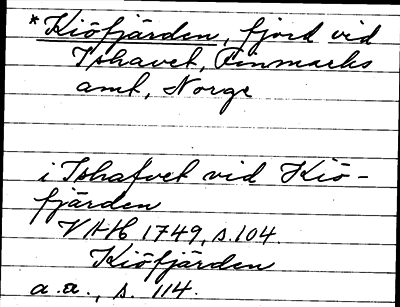 *Kiöfjärden, fjord vid
Ishavet, Finmarks
amt, Norge
i Ishafvet vid Kiö-
fjärden
VAH 1749, s. 104.
Kiöfjärden
a.a., s. 114.